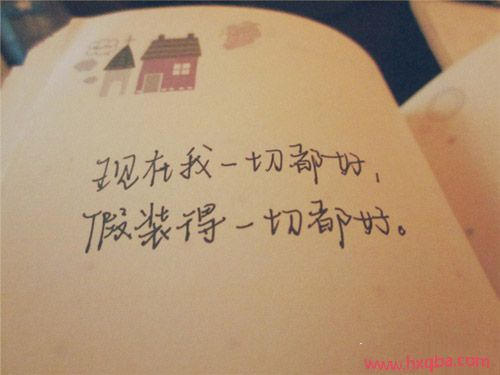 现在我一切都好,
假装得一切都好。
www.hxqba.com